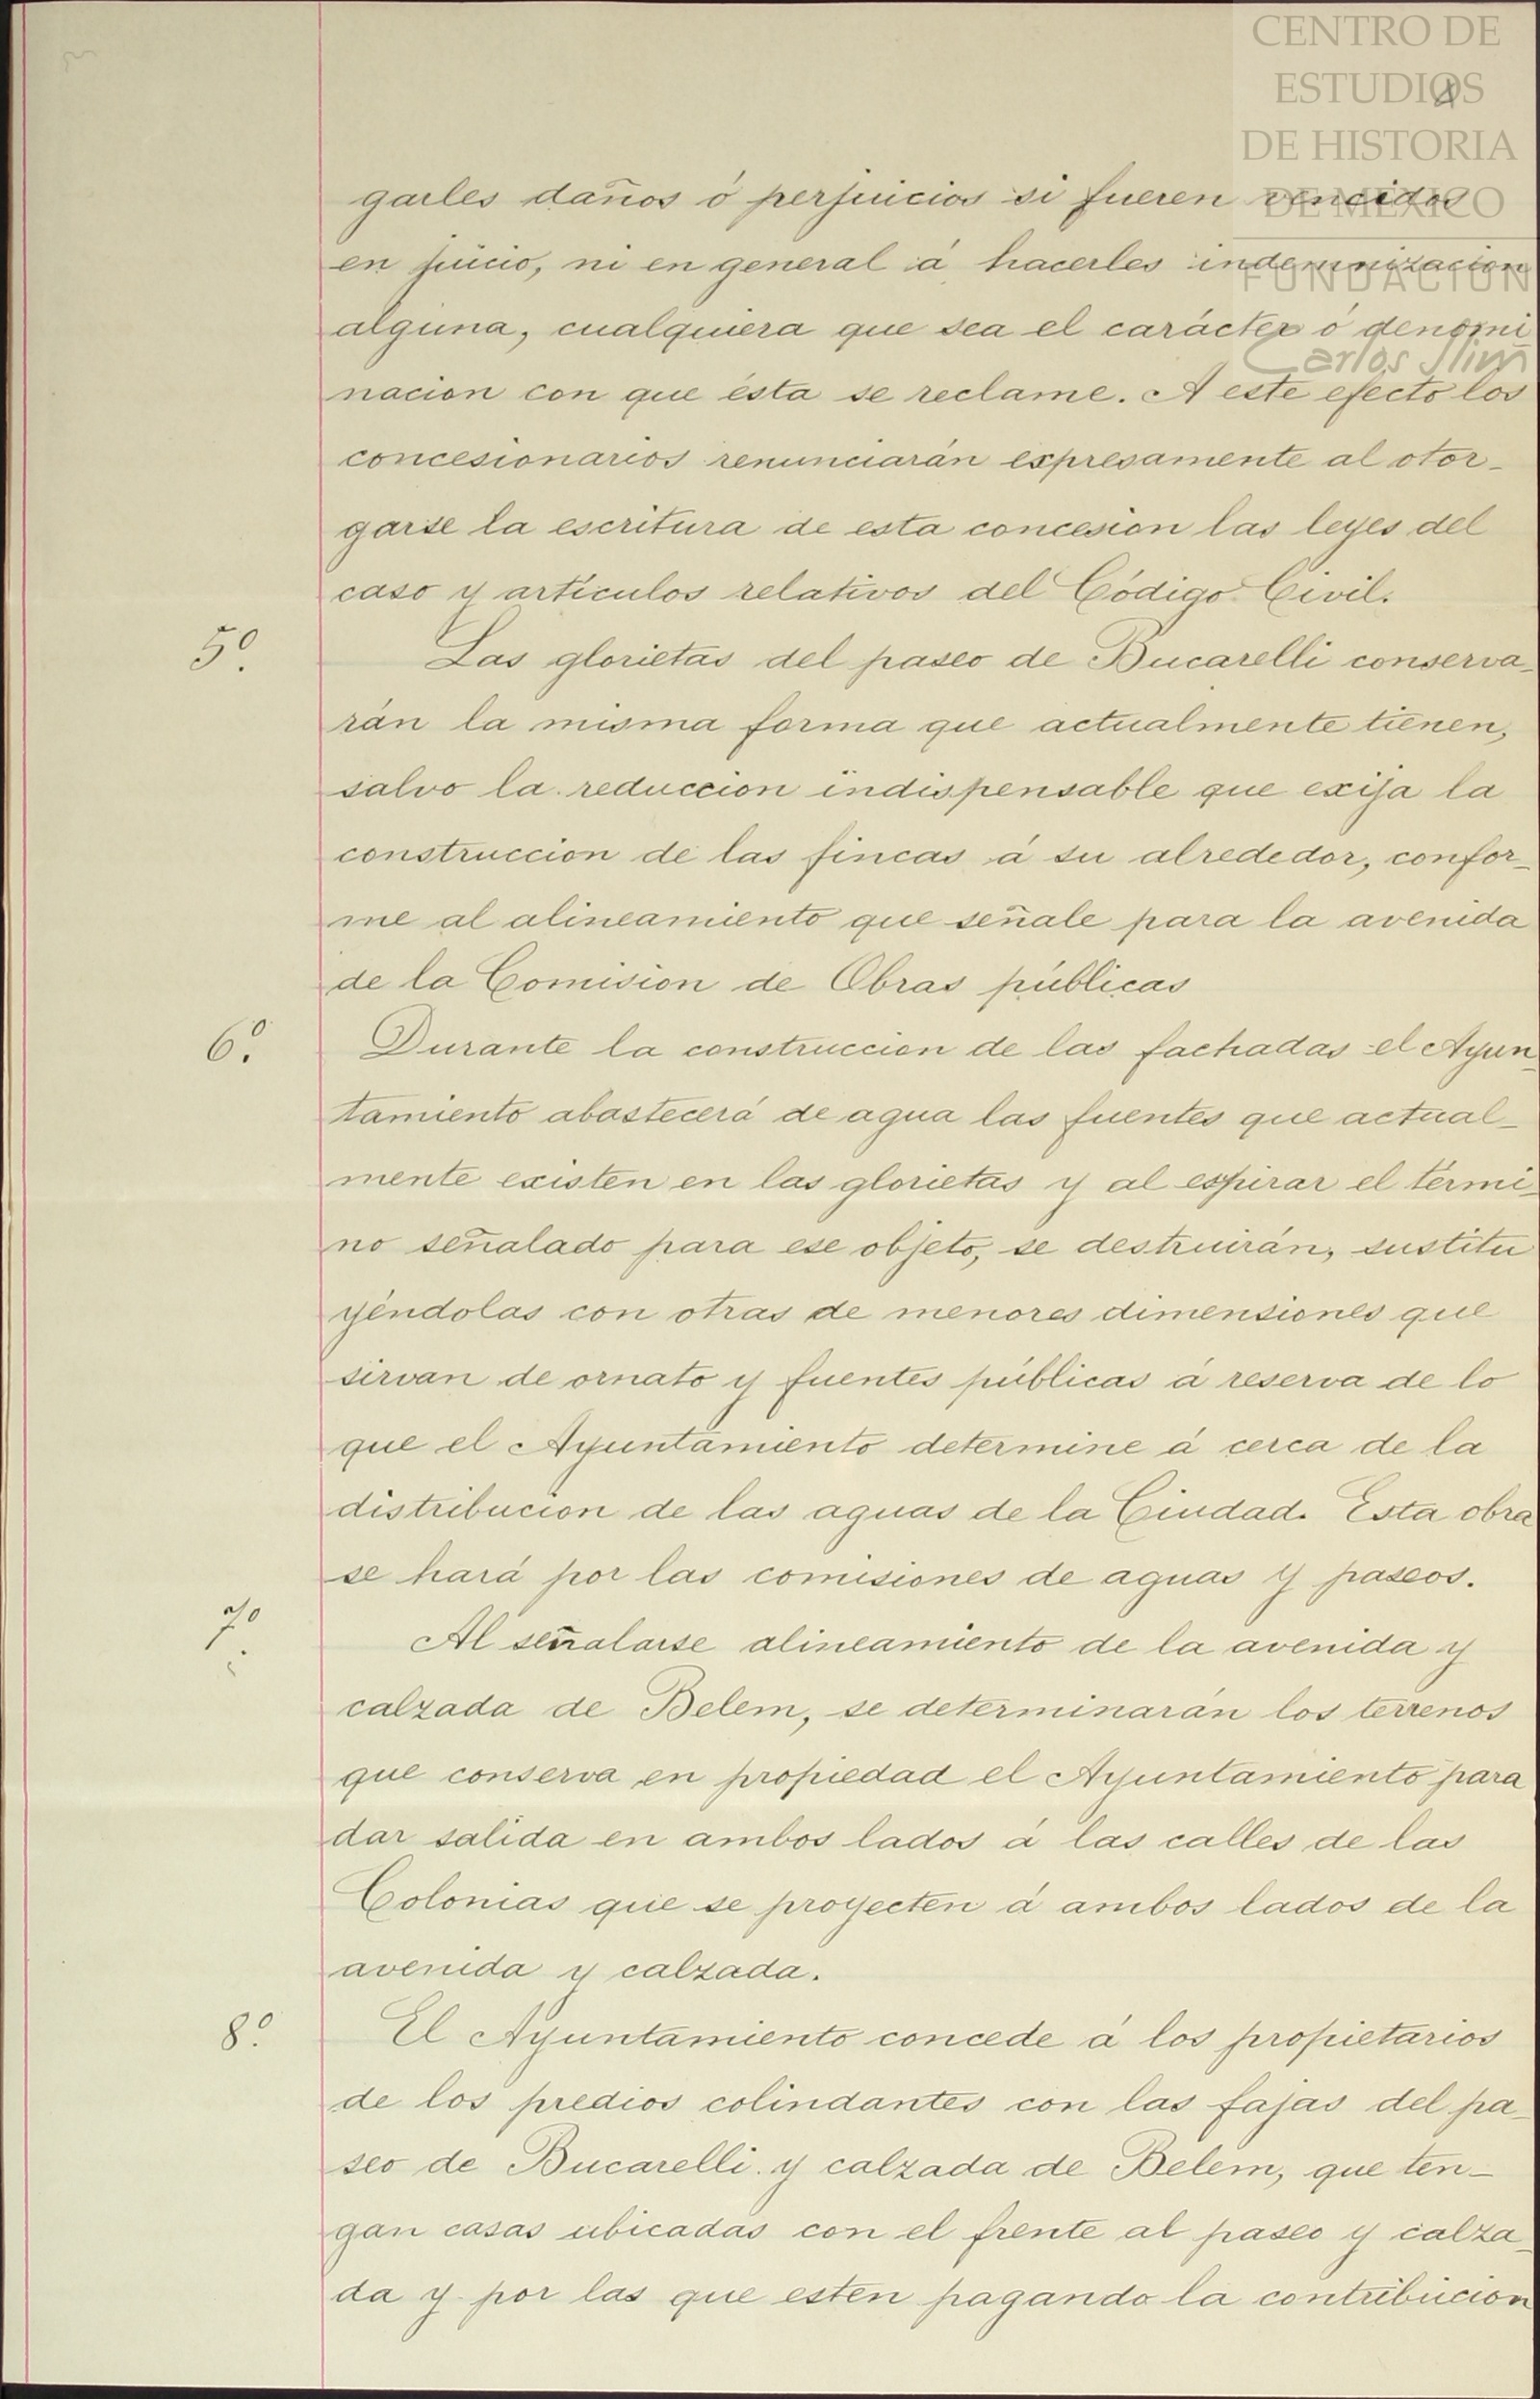 CENTRO DE
ESTUDIOS
DE HISTORIA
DE MEXICO
FUNDACION
Carlos Slim
garles daños ó perjuicios si fueren vencidos
en juicio, ni en general á hacerles indemnizacion
alguna, cualquiera que sea el carácter ó denomi
nacion con que ésta se reclame. A este efecto los
concesionarios renunciarán expresamente al otor-
garse la escritura de esta concesion las leyes del
caso y artículos relativos del Código Civil.
5º. Las glorietas del paseo de Bucarelli conserva-
rán la misma forma que actualmente tienen,
salvo la reduccion indispensable que exija la
construccion de las fincas á su alrededor, confor-
me al alineamiento que señale para la avenida
de la Comision de Obras públicas
6º. Durante la construccion de las fachadas el Ayun-
tamiento abastecerá de agua las fuentes que actual-
mente existen en las glorietas y al espirar el térmi-
no señalado para ese objeto, se destruirán, sustitu
yéndolas con otras de menores dimensiones que
sirvan de ornato y fuentes públicas á reserva de lo
que el Ayuntamiento determine á cerca de la
distribucion de las aguas de la Ciudad. Esta obra
se hará por las comisiones de aguas y paseos.
7º. Al señalarse alineamiento de la avenida y
calzada de Belem, se determinarán los terrenos
que conserva en propiedad el Ayuntamiento para
dar salida en ambos lados á las calles de las
Colonias que se proyecten á ambos lados de la
avenida y calzada.
8º. El Ayuntamiento concede á los propietarios
de los predios colindantes con las fajas del pa-
seo de Bucarelli y calzada de Belem, que ten-
gan casas ubicadas con el frente al paseo y calza-
da y por las que esten pagando la contribucion